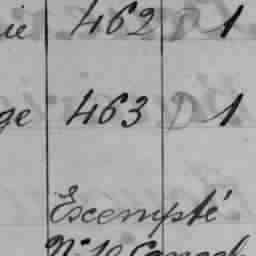 ie 462 D 1
ge 463 D 1
Exempté